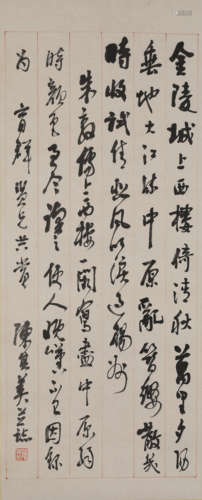 金陵城上西樓倚清秋萬里夕陽
垂地大江流中原亂簪纓散幾
時收試倩悲風吹淚過揚州
朱敦儒上西樓一闋寫盡中原
時顏色至今讀之使人慨嘆不已因錄
為育輝賢兄共賞 陳其美並誌